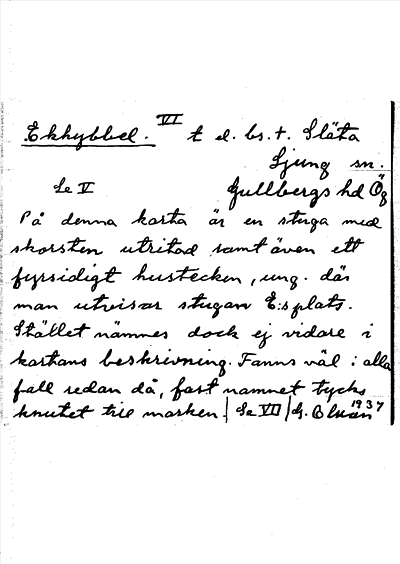 Ekhybbel. VI t el. bs. t. Släta
Ljung sn.
Se V Gullbergs hd Ög
På denna karta är en stuga med
skorsten utritad samt även ett
fyrsidigt hustecken, ung. där
man utvisar stugan E:s plats.
Stället nämnes dock ej vidare i
kartans beskrivning. Fanns väl i alla
fall redan då, fast namnet tycks
knutet till marken. | Se VII | G. Bluan 1937